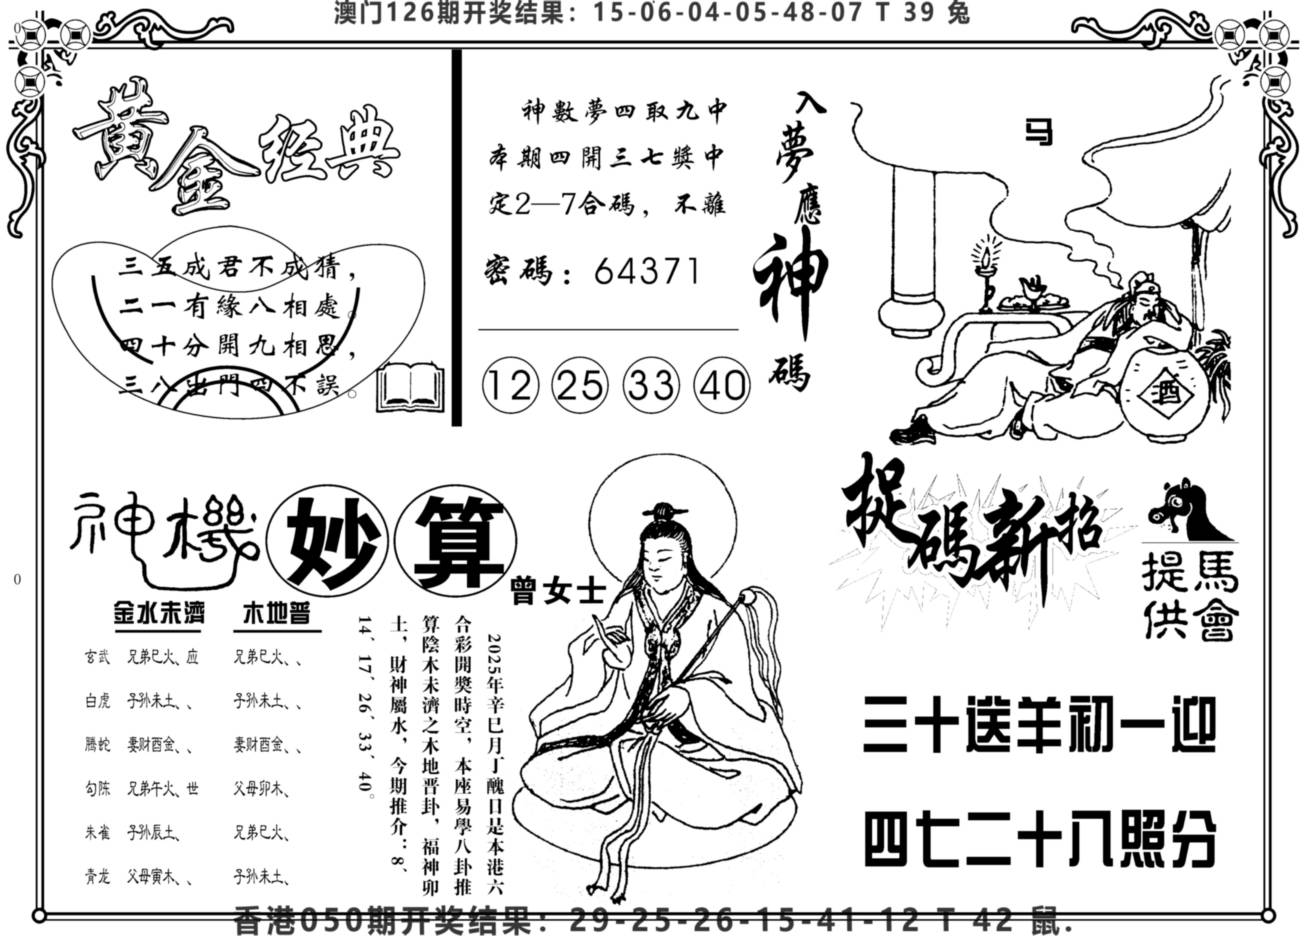 澳门126期开奖结果：15-06-04-05-48-07 T 39 兔
黄金经典
三五成君不成猜，
二一有緣八相處。
四十分開九相思，
三八出門四不誤。
神數夢四取九中
本期四開三七獎中
定2—7合碼，不離
密碼：64371
12 25 33 40
入夢應神碼
马
酒
神機妙算
曾女士
金水未濟 木地普
玄武 兄弟巳火、应 兄弟巳火、、
白虎 子孙未土、、 子孙未土、、
腾蛇 妻财酉金、、 妻财酉金、、
勾陈 兄弟午火、世 父母卯木、
朱雀 子孙辰土、 兄弟巳火、
青龙 父母寅木、、 子孙未土、
2025年辛巳月丁醜日是本港六
合彩開獎時空，本座易學八卦推
算陰木未濟之木地晋卦，福神卯
土，財神屬水，今期推介：8、
14、17、26、33、40。
捉碼新招
馬會
提供
三十送羊初一迎
四七二十八照分
0
0
香港050期开奖结果：29-25-26-15-41-12 T 42 鼠.